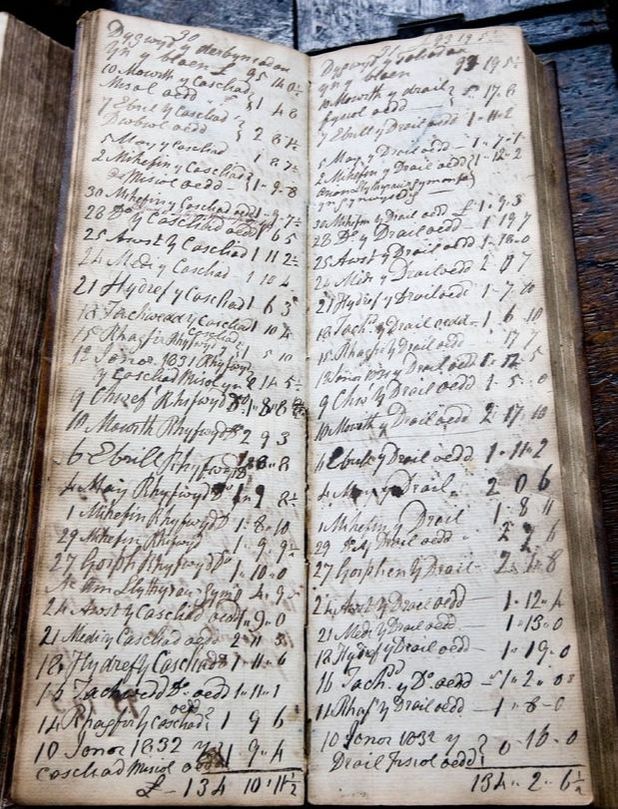 30
Dygwyd y derbyniadau
yn y blaen £ 95 14 0½
10 Mowrth y Caschad
Misol oedd £1 4 8
7 Ebrill y Caschiad
oedd 2 8 4½
5 May y Caschiad 1 8 7½
2 Mihefin y Caschad
Misiol oedd 1 9 8
30 Mihefin y Caschad oedd 1 9 7½
28 Do y Caschiad oedd 1 6 5
25 Awst y Caschiad 1 11 2½
24 Medi y Caschiad 1 10 4
21 Hydref y Caschiad 1 6 3
18 Tachwedd y Caschiad 1 10 4
15 Rhagfir Rhyfwyd 1 5 10
12 Ionor 1831 Rhyfwyd
y Caschad Misol yn 2 14 5½
9 Chref Rhyfwyd Do 1 8 8½
10 Mowrth Rhyfwyd Do 2 9 3
6 Ebrill Rhyfwyd 8
4 May Rhyfwyd Do 1 9 8½
1 Mihefin Rhyfwyd 1 8 10
29 Mihefin Rhyfwyd 1 9 9½
27 Gorph Rhyfwyd Do 1 10 0
Llythyrau 4 9
24 Awst y Caschiad oedd 1 9 0
21 Medi y Caschad oedd 2 11 3
18 Hydref y Caschad 1 11 6
15 Tachwedd Do oedd 1 11 1
14 Rhagfir y Caschad oedd 1 9 6
10 Ionor 1832 y
Caschad Misiol oedd 1 9 4
£ 134 10 11½
31
Dygwyd y taliadau
yn y blaen 93 19 5½
10 Mowrth y drail
fysiol oedd £ 5 17 8
7 Ebrill y Drail oedd 1 11 2
5 May y Drail oedd 1 7 1
2 Mihefin y Drail oedd 1 12 2
30 Mihefin y Drail oedd £ 1 9 3
28 Do y Drail oedd 1 19 7
25 Awst y Drail oedd 1 18 0
24 Medi y Drail oedd 2 0 7
21 Hydref y Drail oedd 1 7 10
18 Tachd y Drail oedd 1 6 10
15 Rhagfir y Drail oedd 17 7
12 Ionor 1831 y Drail oedd 1 12 5
9 Chre y Drail oedd 1 5 0
10 Mowrth y Drail oedd 2 17 10
6 Ebrill y Drail oedd 1 11 2
4 May y Drail 2 0 6
1 Mihefin y Drail 1 8 11
29 Do y Drail oedd 2 2 6
27 Gorphen y Drail 2 8
24 Awst y Drail oedd 1 12 4
21 Medi y Drail oedd 1 13 0
18 Hydref y Drail oedd 1 19 0
16 Tachdd y Do oedd £1 2 0
14 Rhaf y Drail oedd 1 8 0
10 Ionor 1832 y
Drail fisiol oedd 0 16 0
134 2 6½